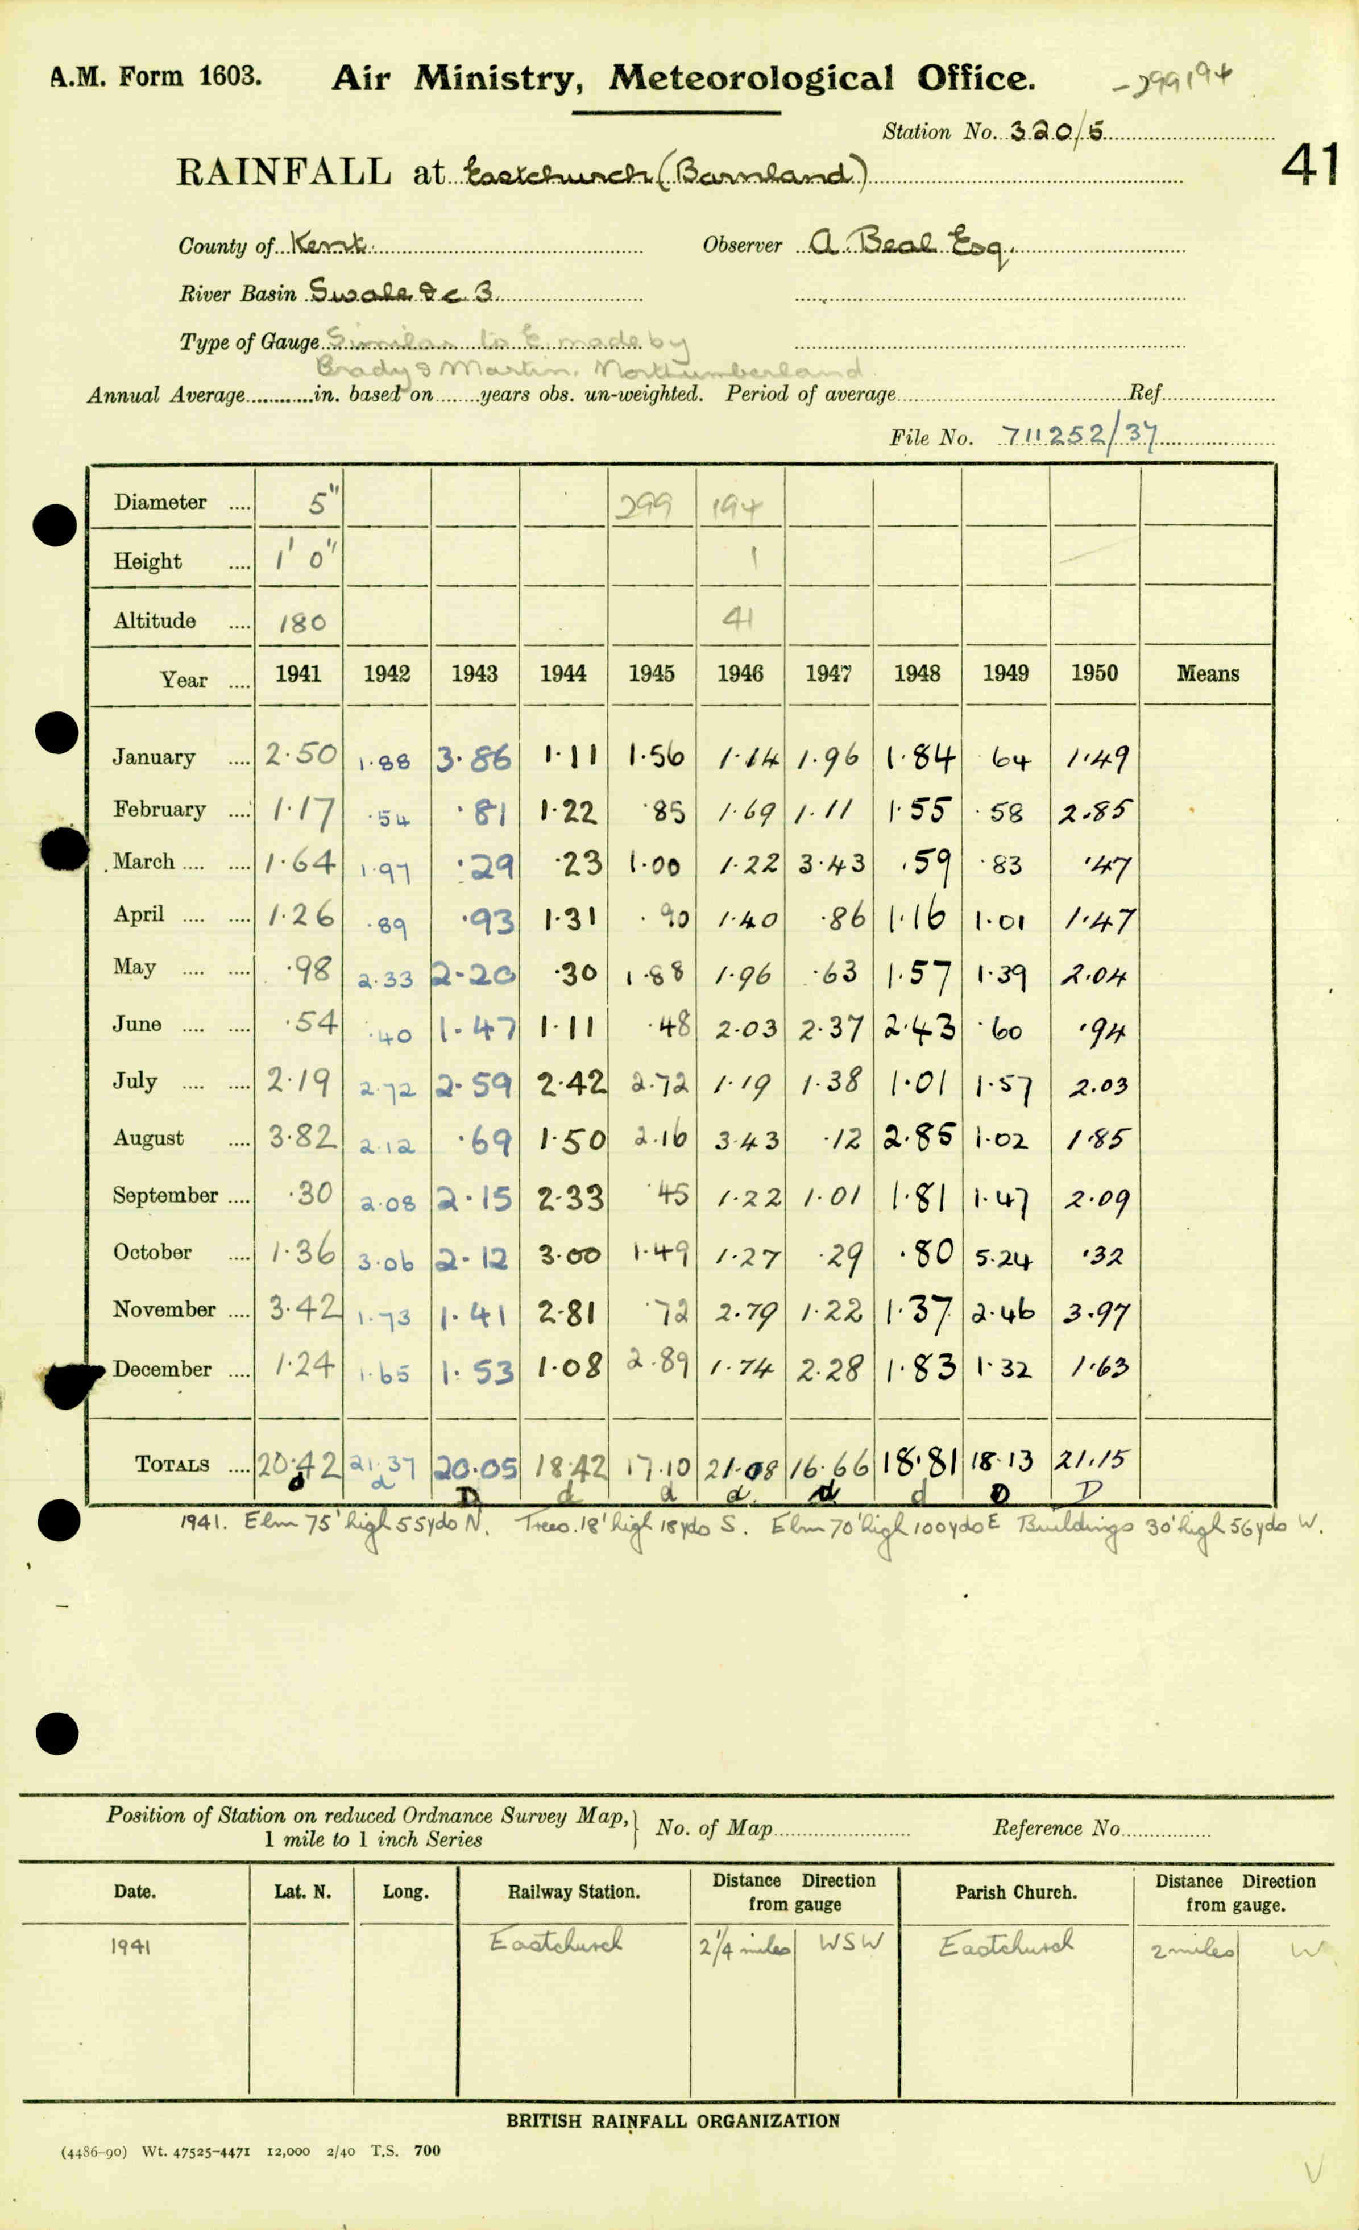 A.M. Form 1603. Air Ministry, Meteorological Office. -299194
Station No. 320/5
41
RAINFALL at Eastchurch (Barnland)
County of Kent. Observer A. Beal Esq.
River Basin Swale &c 3.
Type of Gauge Similar to E. made by
Brady & Martin, Northumberland.
Annual Average............in. based on........years obs. un-weighted. Period of average........Ref........
File No. 711252/37
Diameter .... 5" 299 194
Height .... 1' 0" 1
Altitude .... 180 41
Year .... 1941 1942 1943 1944 1945 1946 1947 1948 1949 1950 Means
January .... 2·50 1·88 3·86 1·11 1·56 1·14 1·96 1·84 ·64 1·49
February .... 1·17 ·54 ·81 1·22 ·85 1·69 1·11 1·55 ·58 2·85
March .... .... 1·64 1·97 ·29 ·23 1·00 1·22 3·43 ·59 ·83 ·47
April .... .... 1·26 ·89 ·93 1·31 ·90 1·40 ·86 1·16 1·01 1·47
May .... .... ·98 2·33 2·20 ·30 1·88 1·96 ·63 1·57 1·39 2·04
June .... .... ·54 ·40 1·47 1·11 ·48 2·03 2·37 2·43 ·60 ·94
July .... .... 2·19 2·72 2·59 2·42 2·72 1·19 1·38 1·01 1·57 2·03
August .... 3·82 2·12 ·69 1·50 2·16 3·43 ·12 2·85 1·02 1·85
September .... ·30 2·08 2·15 2·33 ·45 1·22 1·01 1·81 1·47 2·09
October .... 1·36 3·06 2·12 3·00 1·49 1·27 ·29 ·80 5·24 ·32
November .... 3·42 1·73 1·41 2·81 ·72 2·79 1·22 1·37 2·46 3·97
December .... 1·24 1·65 1·53 1·08 2·89 1·74 2·28 1·83 1·32 1·63
TOTALS .... 20·42 21·37 20·05 18·42 17·10 21·08 16·66 18·81 18·13 21·15
d D d d d d d D D
1941. Elm 75' high 55yds N. Trees. 18' high 18yds S. Elm 70' high 100yds E Buildings 30' high 56yds W.
Position of Station on reduced Ordnance Survey Map,
1 mile to 1 inch Series
No. of Map........ Reference No........
Date. Lat. N. Long. Railway Station. Distance from gauge Direction Parish Church. Distance from gauge. Direction
1941 Eastchurch 2¼ miles WSW Eastchurch 2 miles W
BRITISH RAINFALL ORGANIZATION
(4486-90) Wt. 47525-4471 12,000 2/40 T.S. 700